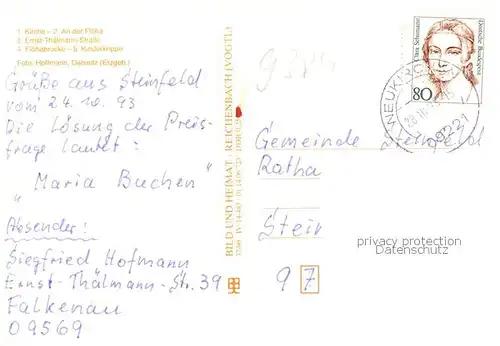 1 Kirche – 2 An der Flöha
3 Ernst-Thälmann-Straße
4 Flöhabrücke – 5 Kinderkrippe
Foto: Hoffmann, (Erzgeb.)
Grüße aus Steinfeld
vom 24.10.93
Die Lösung der Preis-
frage lautet:
"Maria Buchen"
Absender:
Siegfried Hofmann
Ernst-Thälmann-Str. 39
Falkenau
09569
BILD UND HEIMAT · REICHENBACH (VOGTL)
Clara Schumann
Deutsche Bundespost
80
NEUKIRCHEN
09221
Gemeinde Steinfeld
Ratha
Stein
97
privacy protection
Datenschutz